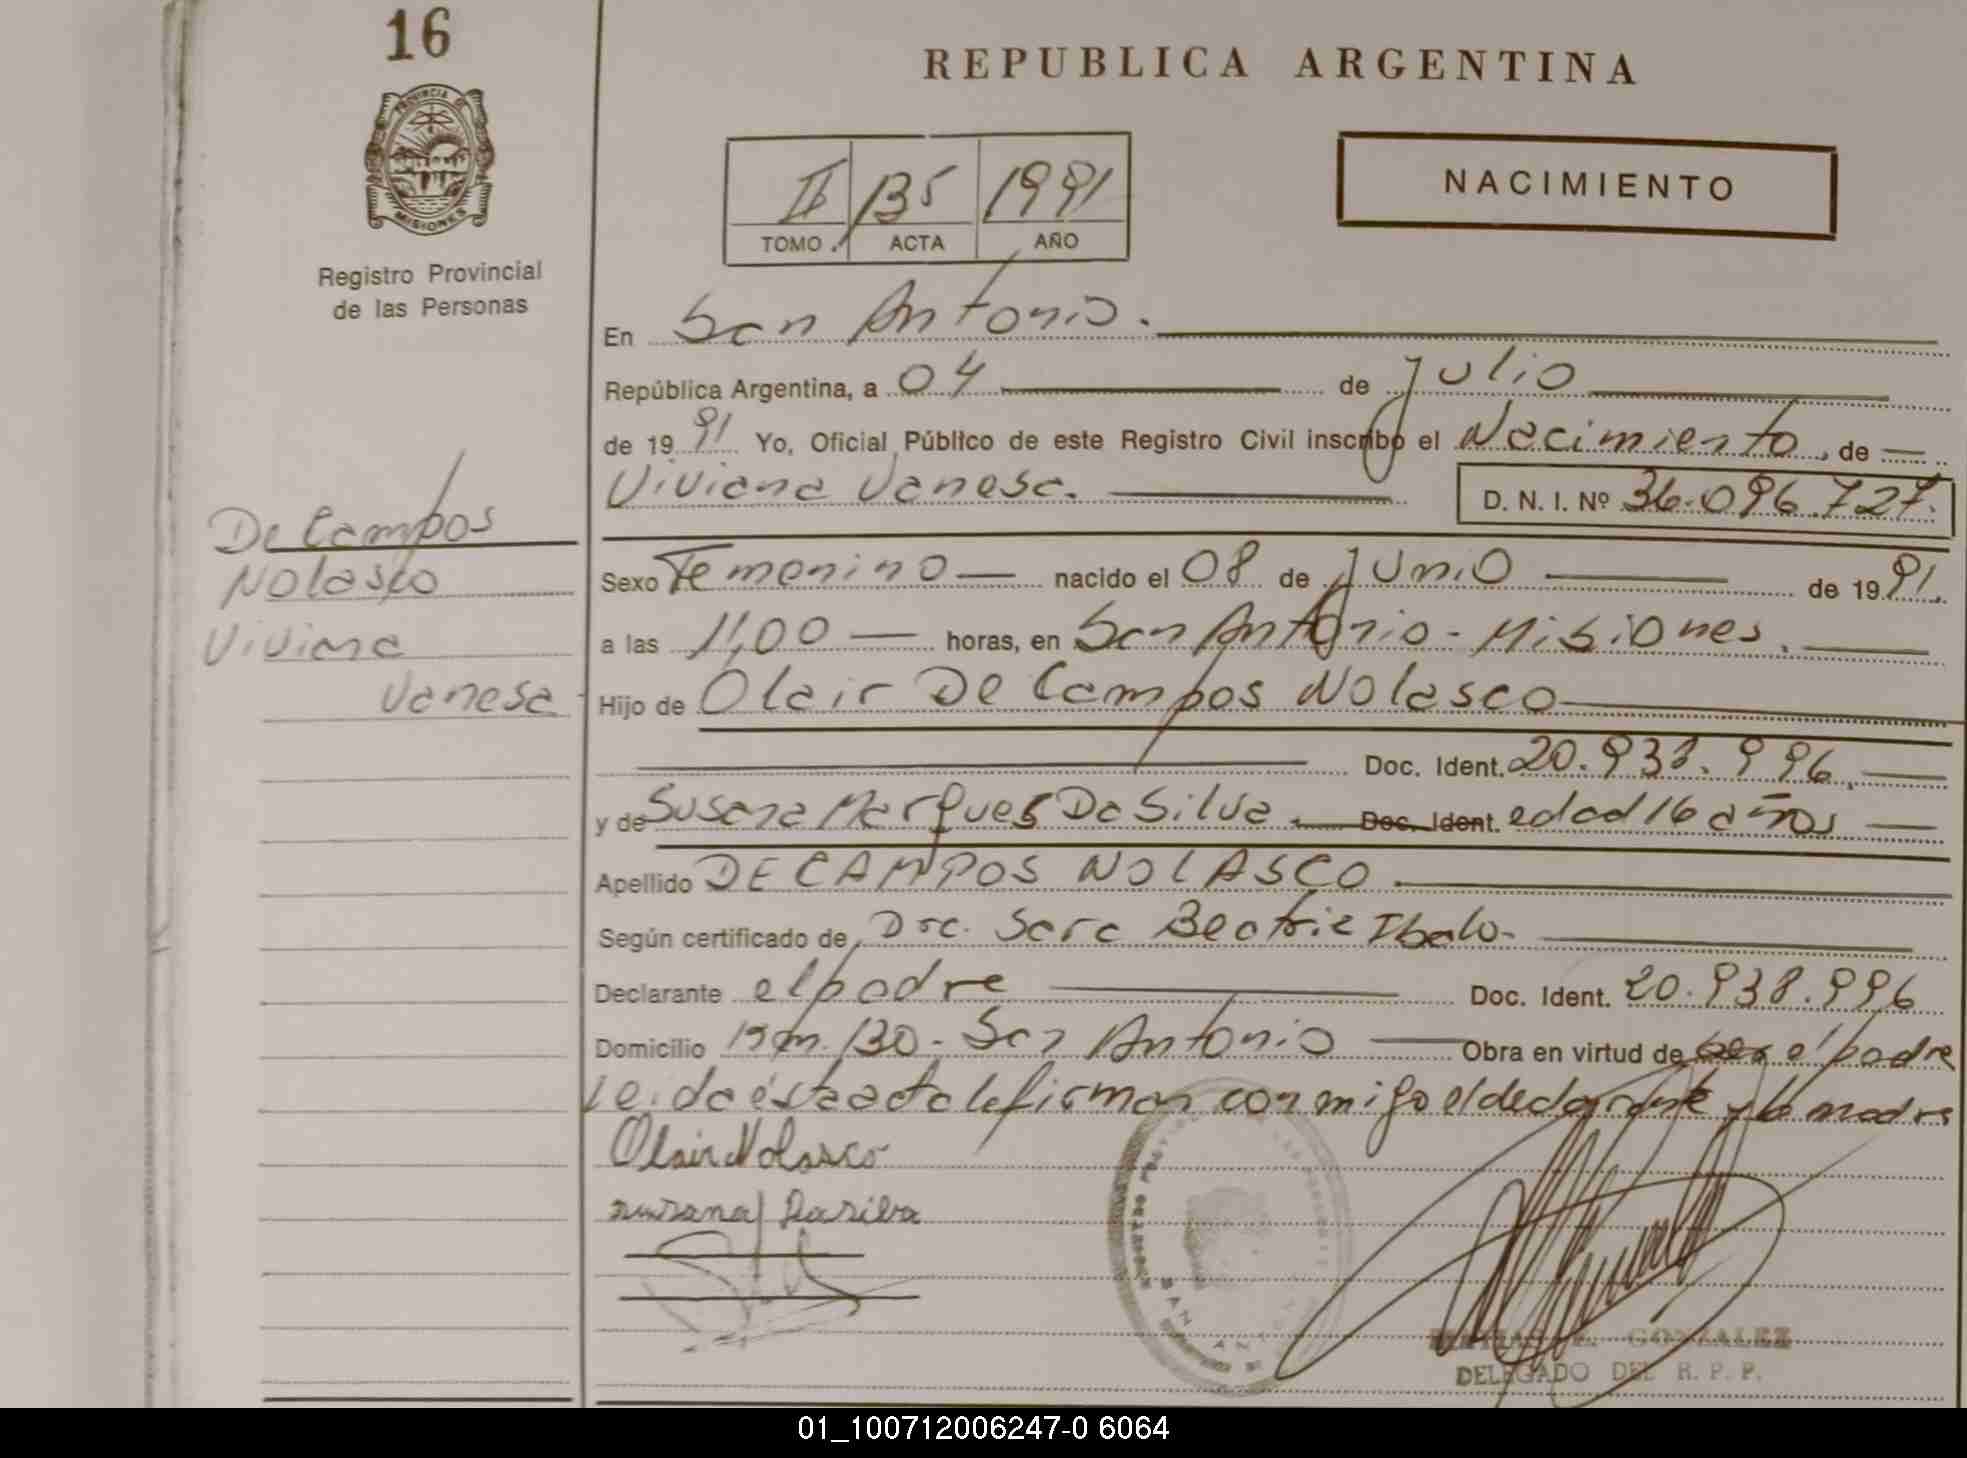 16
REPUBLICA ARGENTINA
PROVINCIA DE
MISIONES
Registro Provincial
de las Personas
II 135 1991
TOMO ACTA AÑO
NACIMIENTO
En San Antonio.
República Argentina, a 04 de Julio
de 1991 Yo, Oficial Público de este Registro Civil inscribo el Nacimiento, de
Viviana Vanesa.
D. N. I. Nº 36.096.727.
De Campos
Nolasco
Viviana
Vanesa
Sexo Femenino nacido el 08 de Junio de 1991.
a las 11,00 horas, en San Antonio - Misiones.
Hijo de Olair De Campos Nolasco
Doc. Ident. 20.938.996.
y de Susana Marques Da Silva. Doc. Ident. edad 16 años
Apellido DE CAMPOS NOLASCO.
Según certificado de Dra. Sara Beatriz Ibalo-
Declarante el padre Doc. Ident. 20.938.996
Domicilio Km. 130 - San Antonio Obra en virtud de el padre
Leida ésta acta la firman conmigo el declarante y la madre
Olair Nolasco
Susana Dasilva
SAN
GONZALEZ
DELEGADO DEL R. P. P.
01_100712006247-0 6064